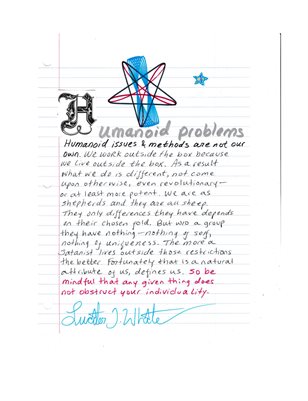 Humanoid problems
Humanoid issues & methods are not our
own. We work outside the box because
we live outside the box. As a result
what we do is different, not come
upon otherwise, even revolutionary—
or at least more potent. We are as
shepherds and they are all sheep.
They only differences they have depends
on their chosen fold. But w/o a group
they have nothing—nothing of self,
nothing of uniqueness. The more a
Satanist lives outside those restrictions
the better. Fortunately that is a natural
attribute of us, defines us. So be
mindful that any given thing does
not obstruct your individuality.